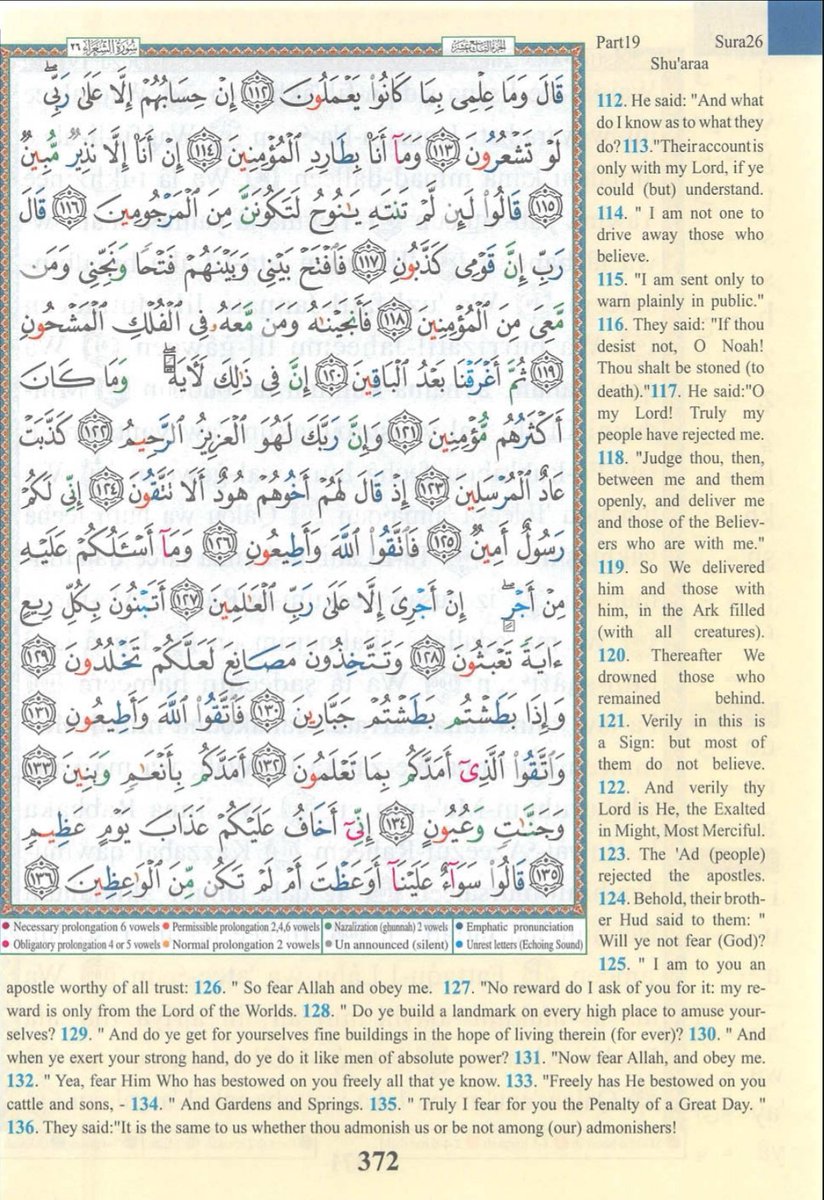 سُورَةُ الشُّعَرَاءِ ٢٦
الجزء التاسع عشر
Part19 Sura26
Shu'araa
قَالَ وَمَا عِلْمِى بِمَا كَانُوا۟ يَعْمَلُونَ ١١٢ إِنْ حِسَابُهُمْ إِلَّا عَلَىٰ رَبِّى ۖ
لَوْ تَشْعُرُونَ ١١٣ وَمَآ أَنَا۠ بِطَارِدِ ٱلْمُؤْمِنِينَ ١١٤ إِنْ أَنَا۠ إِلَّا نَذِيرٌ مُّبِينٌ
١١٥ قَالُوا۟ لَئِن لَّمْ تَنتَهِ يَـٰنُوحُ لَتَكُونَنَّ مِنَ ٱلْمَرْجُومِينَ ١١٦ قَالَ
رَبِّ إِنَّ قَوْمِى كَذَّبُونِ ١١٧ فَٱفْتَحْ بَيْنِى وَبَيْنَهُمْ فَتْحًا وَنَجِّنِى وَمَن
مَّعِىَ مِنَ ٱلْمُؤْمِنِينَ ١١٨ فَأَنجَيْنَـٰهُ وَمَن مَّعَهُۥ فِى ٱلْفُلْكِ ٱلْمَشْحُونِ
١١٩ ثُمَّ أَغْرَقْنَا بَعْدُ ٱلْبَاقِينَ ١٢٠ إِنَّ فِى ذَٰلِكَ لَـَٔايَةً ۖ وَمَا كَانَ
أَكْثَرُهُم مُّؤْمِنِينَ ١٢١ وَإِنَّ رَبَّكَ لَهُوَ ٱلْعَزِيزُ ٱلرَّحِيمُ ١٢٢ كَذَّبَتْ
عَادٌ ٱلْمُرْسَلِينَ ١٢٣ إِذْ قَالَ لَهُمْ أَخُوهُمْ هُودٌ أَلَا تَتَّقُونَ ١٢٤ إِنِّى لَكُمْ
رَسُولٌ أَمِينٌ ١٢٥ فَٱتَّقُوا۟ ٱللَّهَ وَأَطِيعُونِ ١٢٦ وَمَآ أَسْـَٔلُكُمْ عَلَيْهِ
مِنْ أَجْرٍ ۖ إِنْ أَجْرِىَ إِلَّا عَلَىٰ رَبِّ ٱلْعَـٰلَمِينَ ١٢٧ أَتَبْنُونَ بِكُلِّ رِيعٍ
ءَايَةً تَعْبَثُونَ ١٢٨ وَتَتَّخِذُونَ مَصَانِعَ لَعَلَّكُمْ تَخْلُدُونَ ١٢٩
وَإِذَا بَطَشْتُم بَطَشْتُمْ جَبَّارِينَ ١٣٠ فَٱتَّقُوا۟ ٱللَّهَ وَأَطِيعُونِ ١٣١
وَٱتَّقُوا۟ ٱلَّذِىٓ أَمَدَّكُم بِمَا تَعْلَمُونَ ١٣٢ أَمَدَّكُم بِأَنْعَـٰمٍ وَبَنِينَ ١٣٣
وَجَنَّـٰتٍ وَعُيُونٍ ١٣٤ إِنِّىٓ أَخَافُ عَلَيْكُمْ عَذَابَ يَوْمٍ عَظِيمٍ
١٣٥ قَالُوا۟ سَوَآءٌ عَلَيْنَآ أَوَعَظْتَ أَمْ لَمْ تَكُن مِّنَ ٱلْوَٰعِظِينَ ١٣٦
Necessary prolongation 6 vowels Permissible prolongation 2,4,6 vowels Nazalization (ghunnah) 2 vowels Emphatic pronunciation
Obligatory prolongation 4 or 5 vowels Normal prolongation 2 vowels Un announced (silent) Unrest letters (Echoing Sound)
112. He said: "And what
do I know as to what they
do? 113."Their account is
only with my Lord, if ye
could (but) understand.
114. " I am not one to
drive away those who
believe.
115. "I am sent only to
warn plainly in public."
116. They said: "If thou
desist not, O Noah!
Thou shalt be stoned (to
death)."117. He said:"O
my Lord! Truly my
people have rejected me.
118. "Judge thou, then,
between me and them
openly, and deliver me
and those of the Believ-
ers who are with me."
119. So We delivered
him and those with
him, in the Ark filled
(with all creatures).
120. Thereafter We
drowned those who
remained behind.
121. Verily in this is
a Sign: but most of
them do not believe.
122. And verily thy
Lord is He, the Exalted
in Might, Most Merciful.
123. The 'Ad (people)
rejected the apostles.
124. Behold, their broth-
er Hud said to them: "
Will ye not fear (God)?
125. " I am to you an
apostle worthy of all trust: 126. " So fear Allah and obey me. 127. "No reward do I ask of you for it: my re-
ward is only from the Lord of the Worlds. 128. " Do ye build a landmark on every high place to amuse your-
selves? 129. " And do ye get for yourselves fine buildings in the hope of living therein (for ever)? 130. " And
when ye exert your strong hand, do ye do it like men of absolute power? 131. "Now fear Allah, and obey me.
132. " Yea, fear Him Who has bestowed on you freely all that ye know. 133. "Freely has He bestowed on you
cattle and sons, - 134. " And Gardens and Springs. 135. " Truly I fear for you the Penalty of a Great Day. "
136. They said:"It is the same to us whether thou admonish us or be not among (our) admonishers!
372